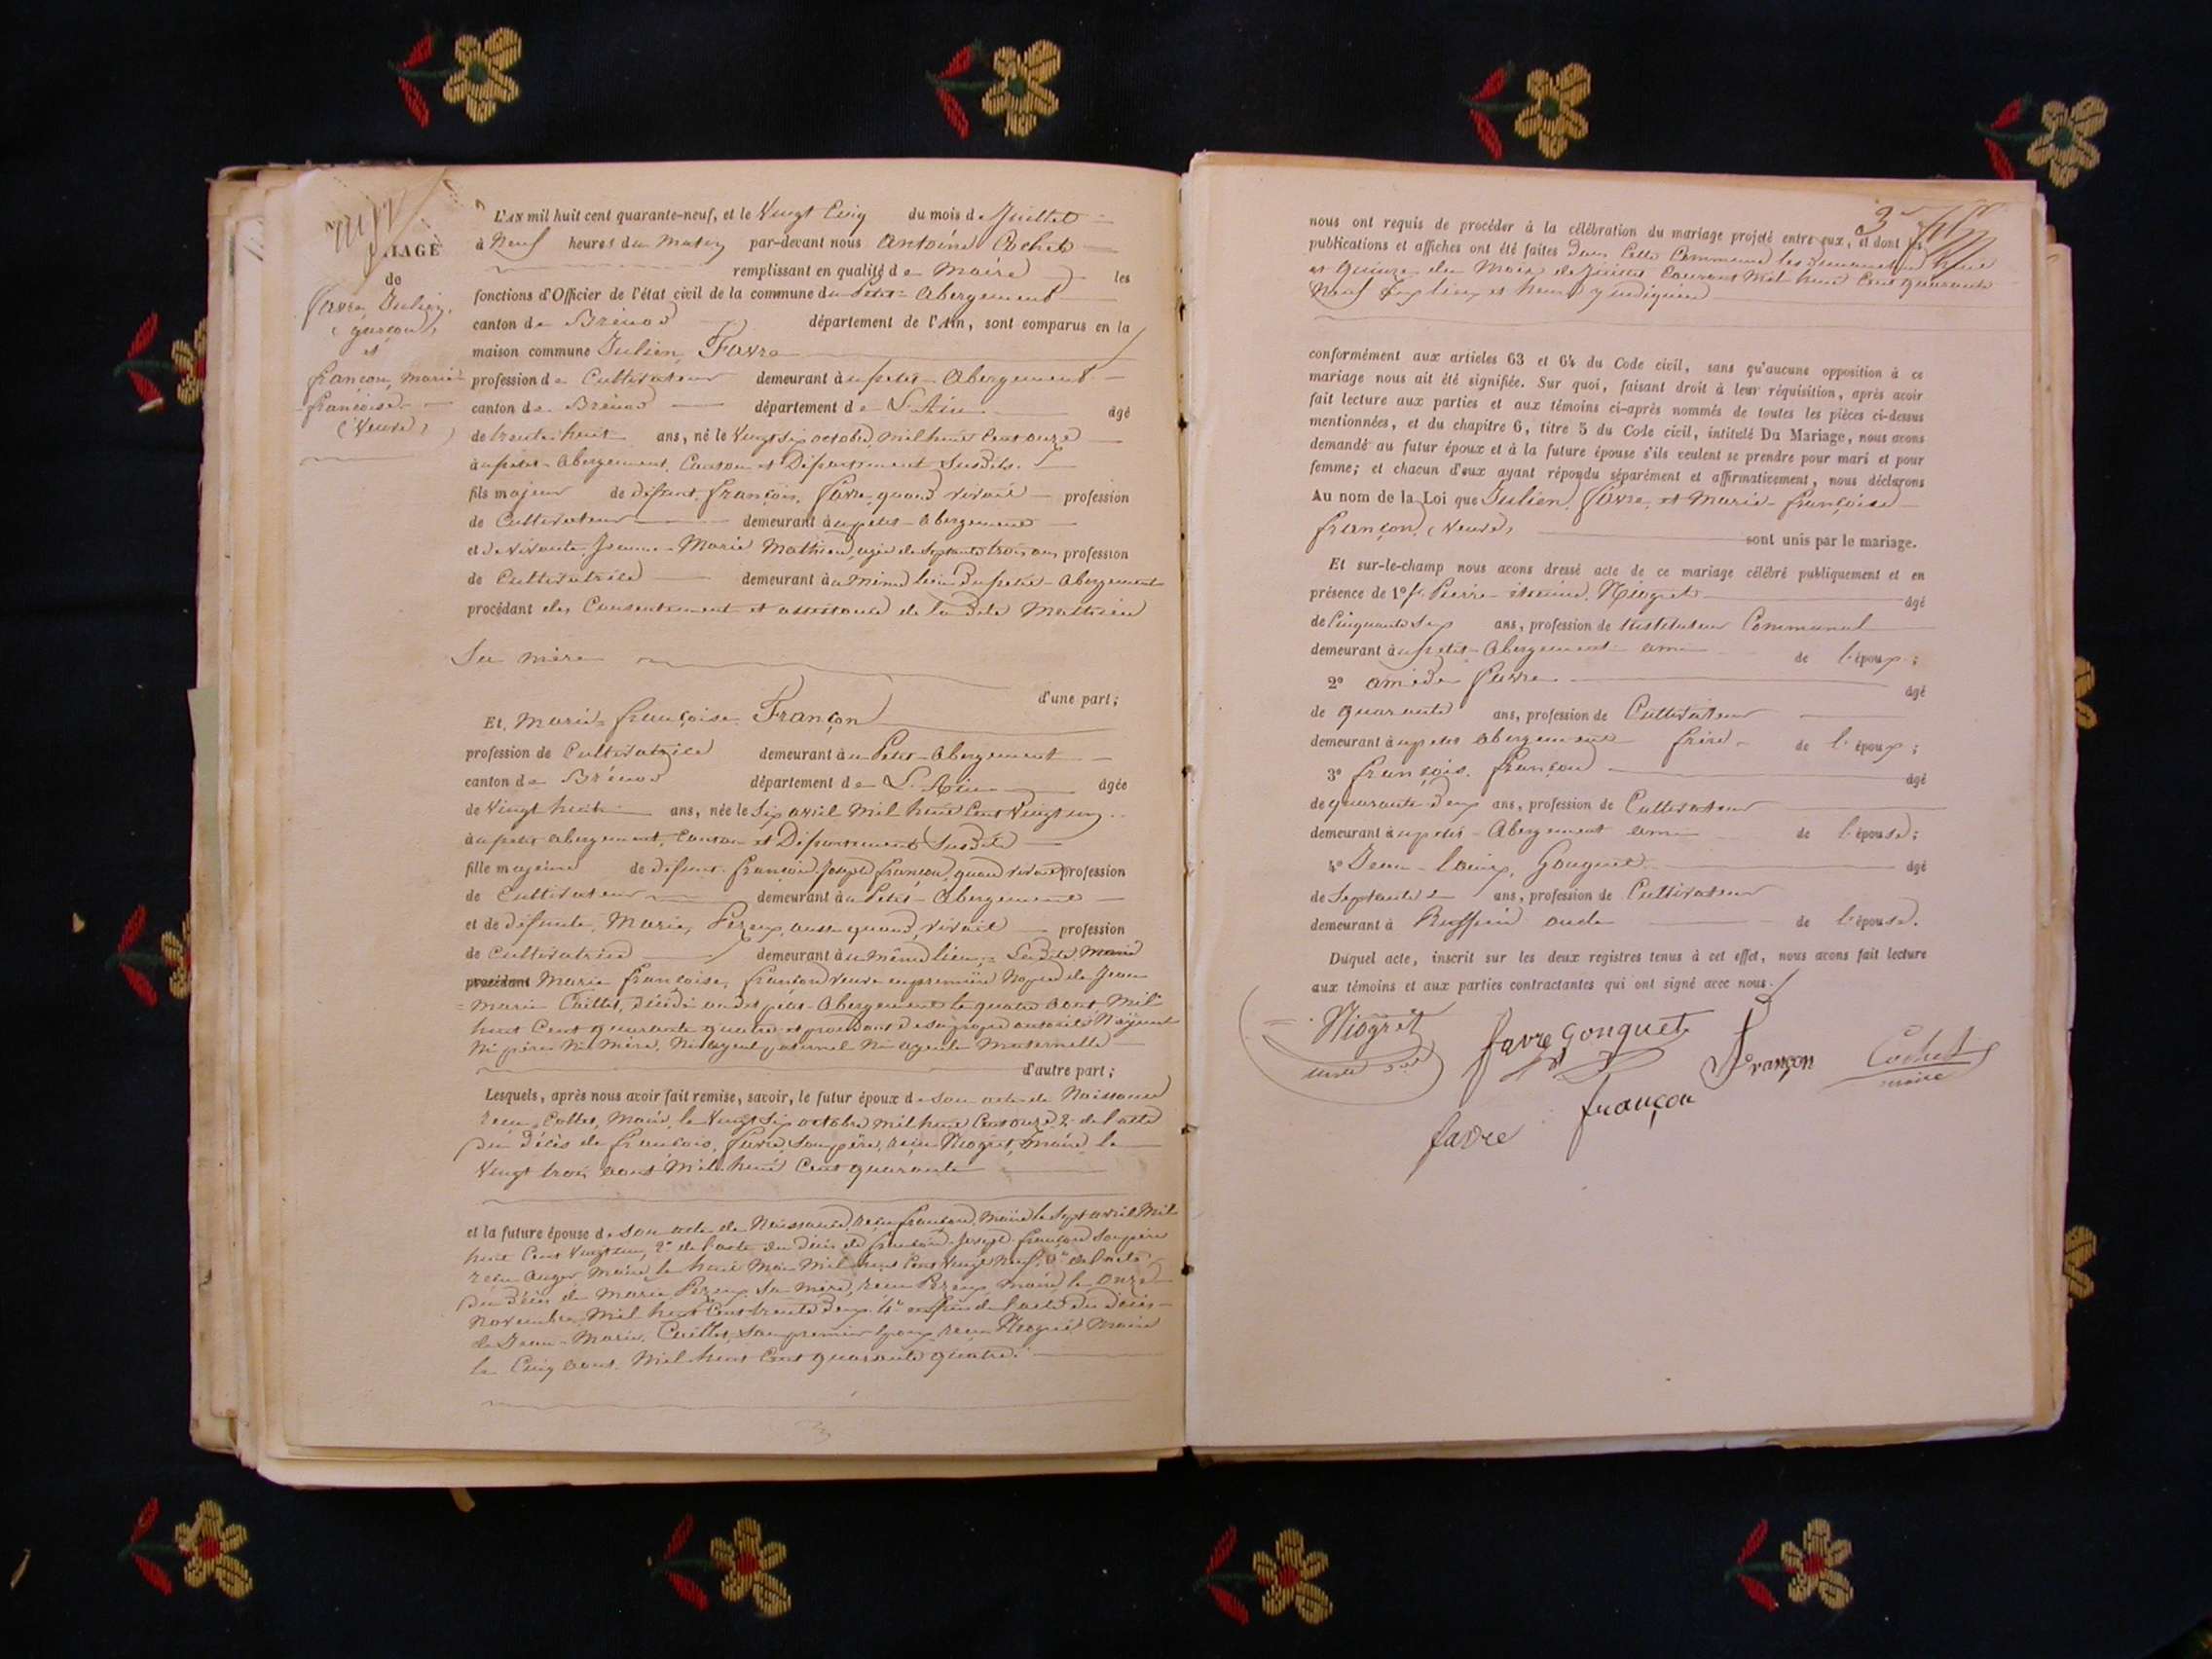 MARIAGE
de
favre, Julien,
(garçon)
et
françon, marie
françoise
(Veuve)
L'AN mil huit cent quarante-neuf, et le Vingt Cinq du mois de Juillet
à Neuf heures du Matin par-devant nous Antoine Cochet
remplissant en qualité de Maire les
fonctions d'Officier de l'état civil de la commune du Petit-Abergement
canton de Brénod département de l'Ain, sont comparus en la
maison commune Julien Favre
profession de Cultivateur demeurant à petit-Abergement
canton de Brénod département de L'Ain âgé
de trente huit ans, né le Vingt Six octobre mil huit Cent onze
au petit-Abergement, Canton et Département Susdits.
fils majeur de défunt françois favre quand vivait profession
de Cultivateur demeurant au petit-Abergement
et de vivante Jeanne-Marie Mathieu, agée de Septante trois ans profession
de Cultivatrice demeurant au Même lieu du petit-Abergement
procédant du Consentement et assistance de la dite Mathieu
Sa mère
d'une part;
Et, Marie françoise Françon
profession de Cultivatrice demeurant au Petit-Abergement
canton de Brénod département de L'Ain âgée
de Vingt huit ans, née le Six avril Mil huit Cent Vingt un
au petit-abergement, Canton et Département Susdits
fille majeure de défunt françois Joseph françon, quand vivait profession
de Cultivateur demeurant au Petit-Abergement
et de défunte Marie Perrux, aussi quand vivait profession
de Cultivatrice demeurant au même lieu, Ladite Marie
procédant Marie françoise, françon veuve en première Noces de Jean
Marie Caillet, décédé audit petit-Abergement le quatre aout Mil
huit Cent quarante quatre et procédant de sa propre autorité N'ayant
Ni père Ni Mère, Ni ayeul paternel Ni ayeule Maternelle
d'autre part;
Lesquels, après nous avoir fait remise, savoir, le futur époux de son acte de Naissance
reçu Maire, le Vingt Six octobre mil huit Cent onze 2° de l'acte
du Décès de françois favre, son père, reçu Niogret, Maire le
Vingt trois aout Mil huit Cent quarante
et la future épouse de Son acte de Naissance, reçu françon, Maire le Sept avril Mil
huit Cent Vingt un, 2° de l'acte du décès de françois Joseph françon son père
reçu Auger Maire le huit Mai Mil huit Cent Vingt Neuf, 3° de l'acte
du Décès de Marie Perrux Sa mère, reçu Perrux Maire le onze
Novembre Mil huit Cent trente deux, 4° enfin de l'acte du décès
de Jean-Marie Caillet, Son premier époux, reçu Niogret Maire
le Cinq aout Mil huit Cent quarante quatre.
3
nous ont requis de procéder à la célébration du mariage projeté entre eux, et dont les
publications et affiches ont été faites dans Cette Commune les Dimanches huit
et Quinze du Mois de Juillet Courant Mil huit Cent quarante
Neuf aux lieux et heures y indiquées
conformément aux articles 63 et 64 du Code civil, sans qu'aucune opposition à ce
mariage nous ait été signifiée. Sur quoi, faisant droit à leur réquisition, après avoir
fait lecture aux parties et aux témoins ci-après nommés de toutes les pièces ci-dessus
mentionnées, et du chapitre 6, titre 5 du Code civil, intitulé Du Mariage, nous avons
demandé au futur époux et à la future épouse s'ils veulent se prendre pour mari et pour
femme; et chacun d'eux ayant répondu séparément et affirmativement, nous déclarons
Au nom de la Loi que Julien, favre, et Marie-françoise
françon, (Veuve), sont unis par le mariage.
Et sur-le-champ nous avons dressé acte de ce mariage célébré publiquement et en
présence de 1° Pierre-Niogret âgé
de Cinquante Six ans, profession de Instituteur Communal
demeurant au petit-Abergement ami de l'époux;
2° amédée favre âgé
de quarante ans, profession de Cultivateur
demeurant au petit abergement frère de l'époux;
3° françois françon âgé
de quarante deux ans, profession de Cultivateur
demeurant au petit-Abergement ami de l'épouse;
4° Jean-Louis, Gonguet âgé
de Septante 2 ans, profession de Cultivateur
demeurant à Ruffieu oncle de l'épouse.
Duquel acte, inscrit sur les deux registres tenus à cet effet, nous avons fait lecture
aux témoins et aux parties contractantes qui ont signé avec nous.
Niogret
favre Gonguet
Françon
Cochet
maire
françon
favre